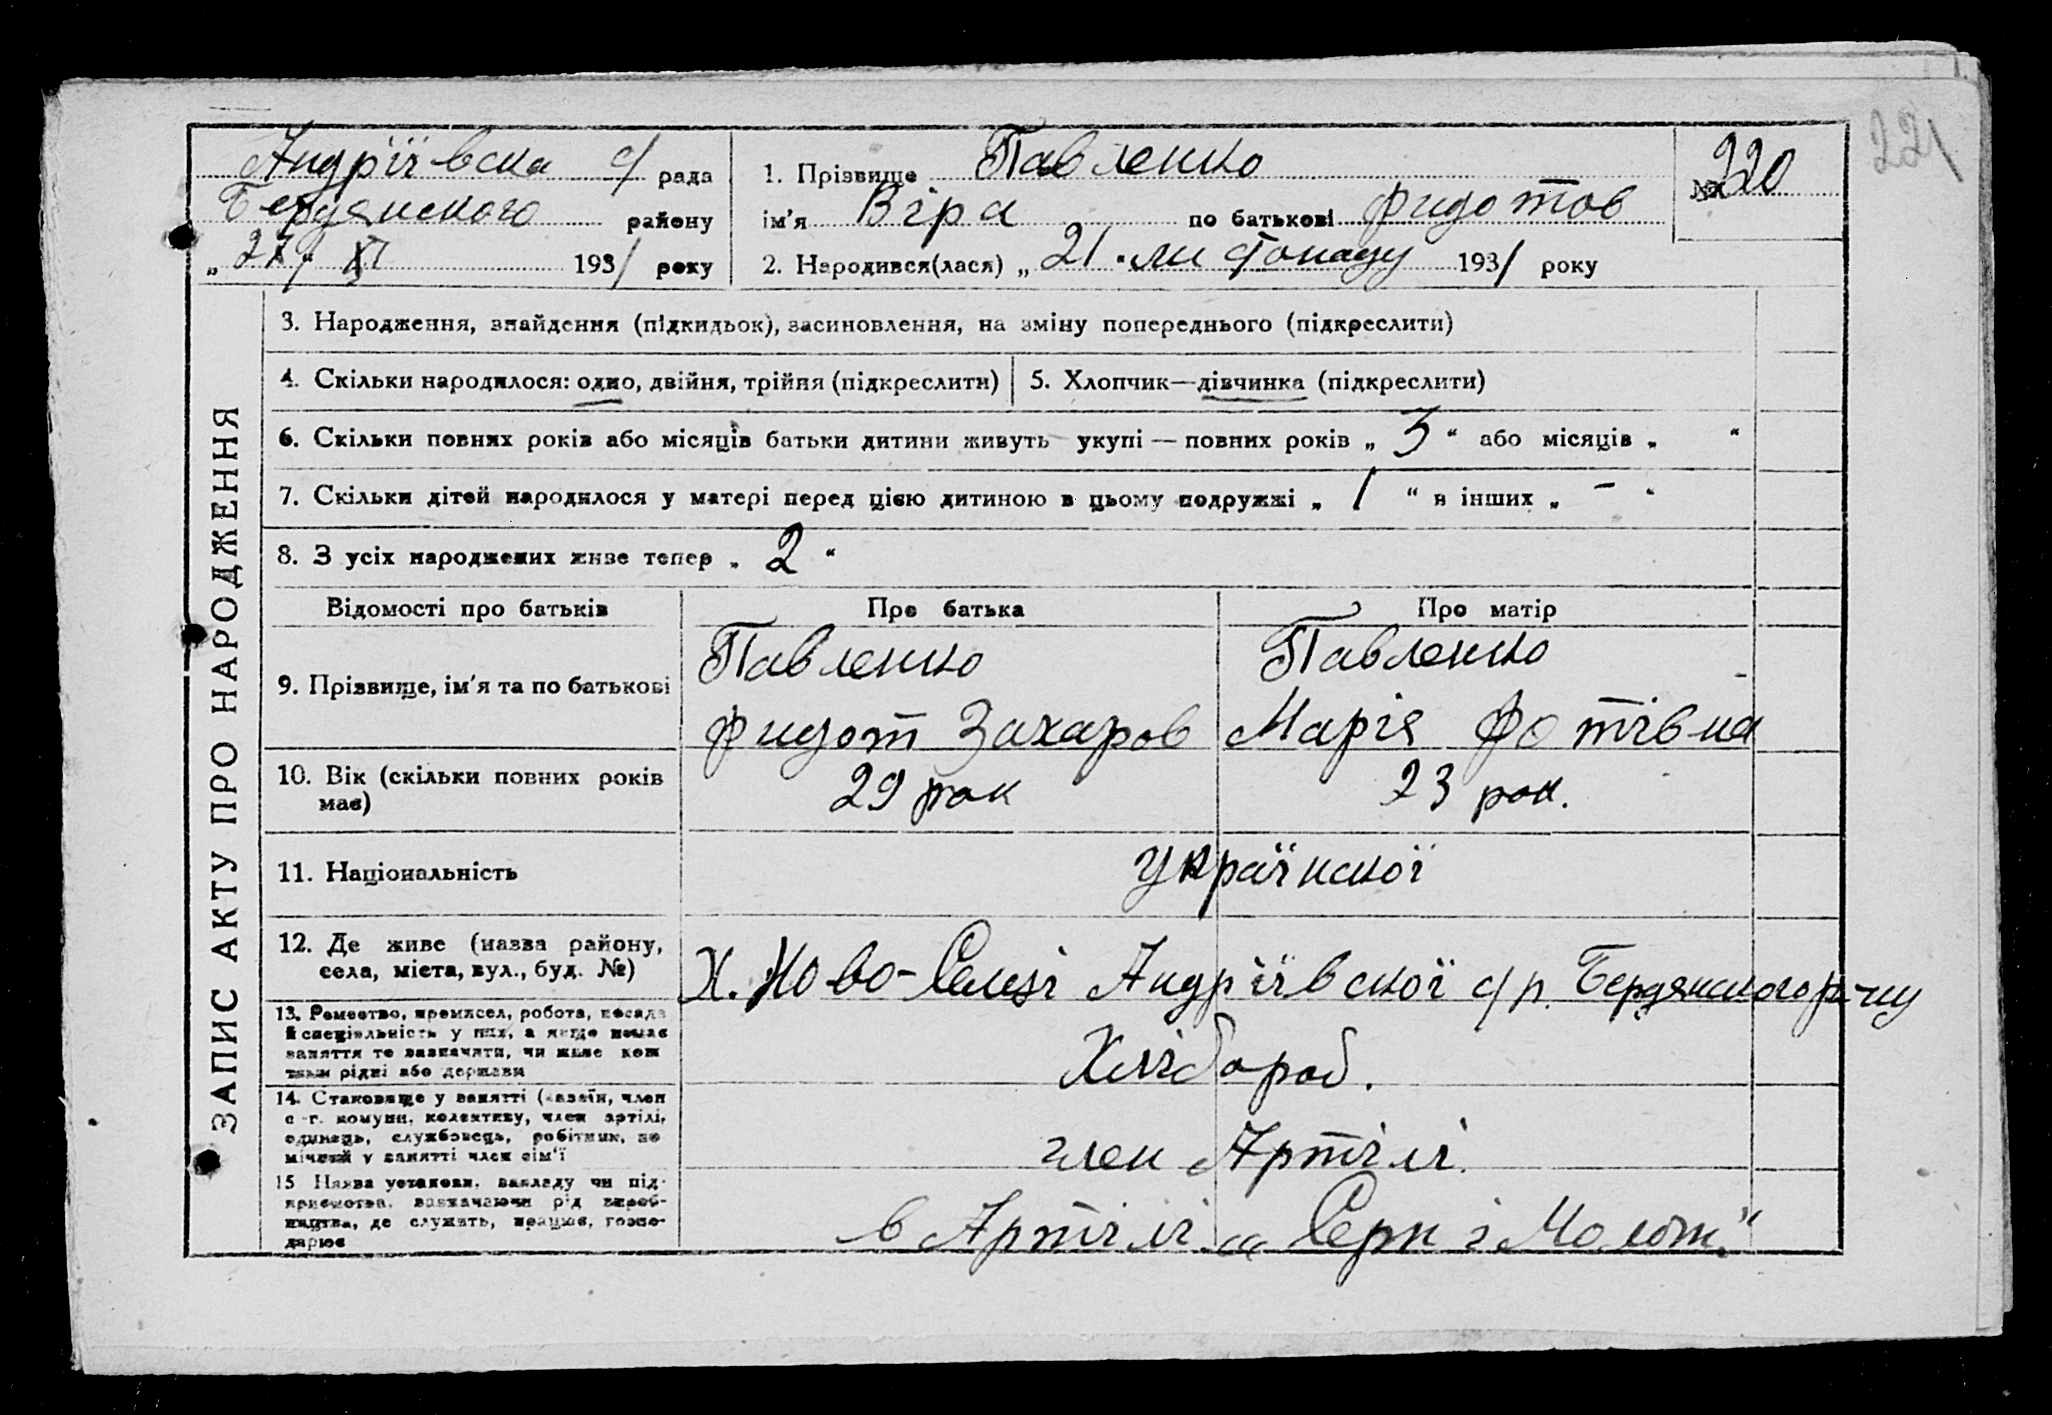 221
Андріївска с/ рада
Бердянского району
„27“ XI 1931 року
1. Прізвище Павленко
ім'я Віра по батькові Фидотов
2. Народився(лася) „21“ листопаду 1931 року
№ 220
ЗАПИС АКТУ ПРО НАРОДЖЕННЯ
3. Народження, знайдення (підкидьок), засиновлення, на зміну попереднього (підкреслити)
4. Скільки народилося: одно, двійня, трійня (підкреслити)
5. Хлопчик—дівчинка (підкреслити)
6. Скільки повних років або місяців батьки дитини живуть укупі — повних років „ 3 “ або місяців „ “
7. Скільки дітей народилося у матері перед цією дитиною в цьому подружжі „ 1 “ в інших „ – “
8. З усіх народжених живе тепер „ 2 “
Відомості про батьків
Про батька
Про матір
9. Прізвище, ім'я та по батькові
Павленко
Фидот Захаров
Павленко
Марія Фотівна
10. Вік (скільки повних років
має)
29 рок
23 рок.
11. Національність
української
12. Де живе (назва району,
села, міста, вул., буд. №)
Х. Ново-Селиці Андріївскої с/р. Бердянского р-ну
13. Ремество, промисел, робота, посада
й спеціяльність у них, а якщо немає
заняття то зазначити, чи живе кош
тами рідні або держави
Хлібороб.
14. Становище у занятті (хазяїн, член
с.-г. комуни, колективу, член артілі,
одинець, службовець, робітник, по
мічний у занятті член сім'ї
член Артілі.
15 Назва установи, закладу чи під-
приємства, зазначаючи рід вироб-
ництва, де служить, працює, госпо-
дарює
в Артілі „Серп і Молот“